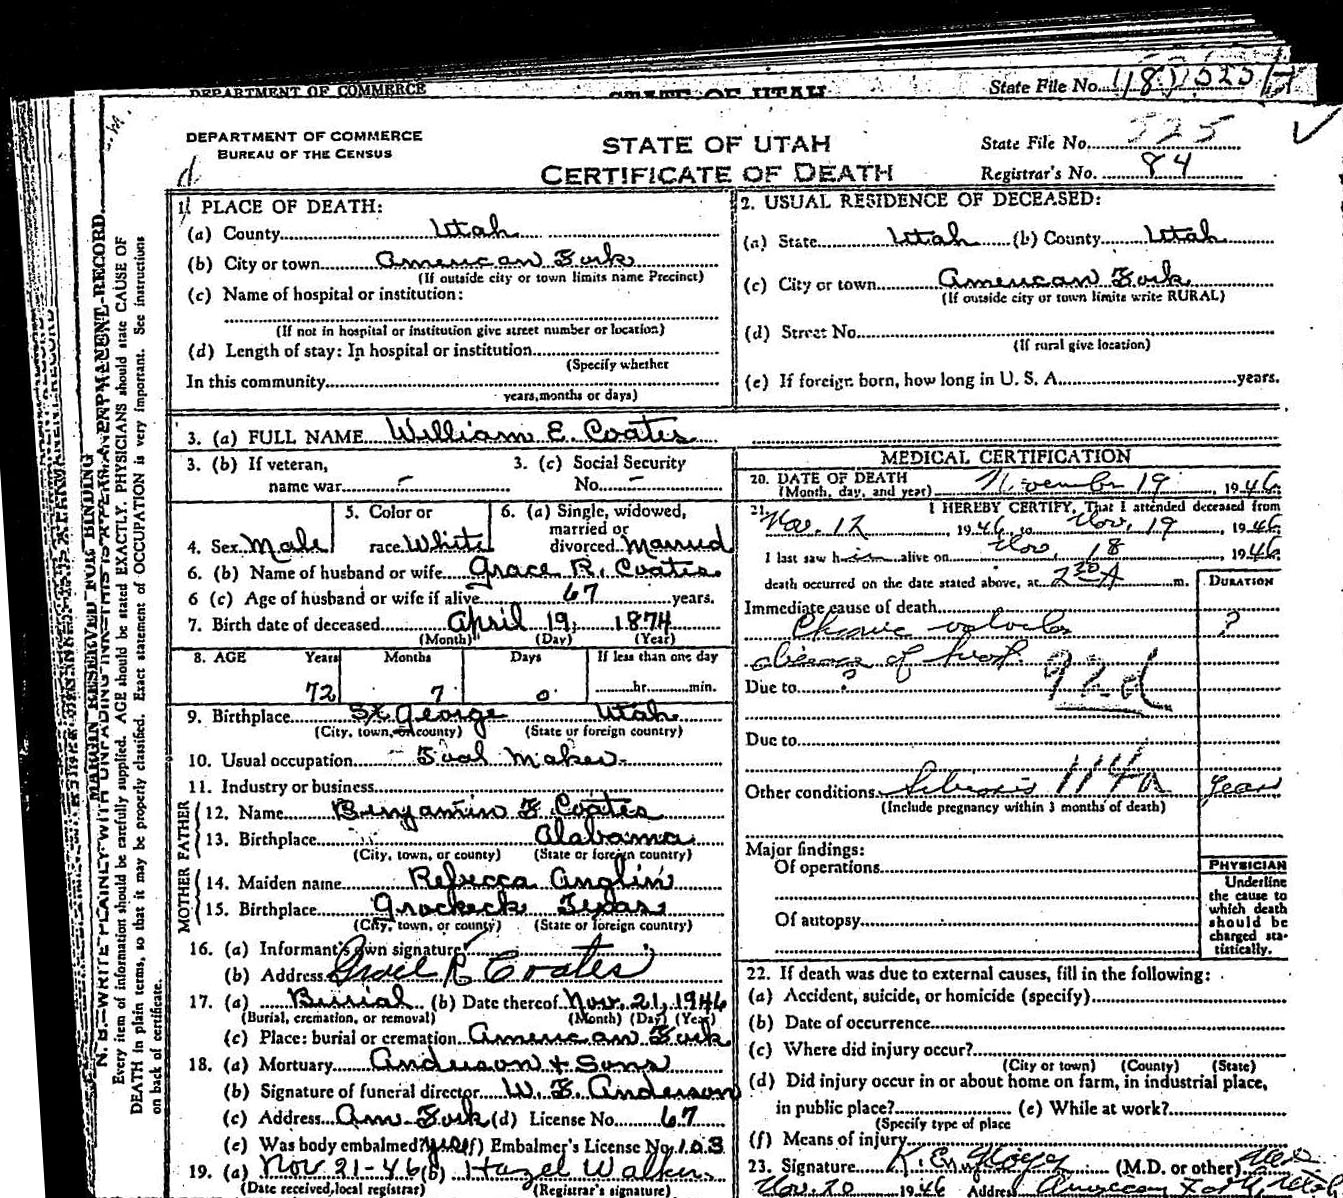 DEPARTMENT OF COMMERCE
STATE OF UTAH
State File No.
DEPARTMENT OF COMMERCE
BUREAU OF THE CENSUS
STATE OF UTAH
CERTIFICATE OF DEATH
State File No. 525
Registrar's No. 84
MARGIN RESERVED FOR BINDING
N. B.—WRITE PLAINLY WITH UNFADING INK—THIS IS A PERMANENT RECORD.
Every item of information should be carefully supplied. AGE should be stated EXACTLY. PHYSICIANS should state CAUSE OF
DEATH in plain terms, so that it may be properly classified. Exact statement of OCCUPATION is very important. See instructions
on back of certificate.
1. PLACE OF DEATH:
(a) County Utah
(b) City or town American Fork
(If outside city or town limits name Precinct)
(c) Name of hospital or institution:
(If not in hospital or institution give street number or location)
(d) Length of stay: In hospital or institution
(Specify whether
In this community
years, months or days)
2. USUAL RESIDENCE OF DECEASED:
(a) State Utah (b) County Utah
(c) City or town American Fork
(If outside city or town limits write RURAL)
(d) Street No.
(If rural give location)
(e) If foreign born, how long in U. S. A. years.
3. (a) FULL NAME William E. Coates
3. (b) If veteran,
name war –
3. (c) Social Security
No. –
4. Sex Male
5. Color or
race White
6. (a) Single, widowed,
married or
divorced Married
6. (b) Name of husband or wife Grace R. Coates
6 (c) Age of husband or wife if alive 67 years.
7. Birth date of deceased April 19, 1874
(Month) (Day) (Year)
8. AGE Years Months Days If less than one day
72 7 0 hr. min.
9. Birthplace St. George Utah
(City, town, or county) (State or foreign country)
10. Usual occupation Tool Maker
11. Industry or business
FATHER
12. Name Benjamin F Coates
13. Birthplace Alabama
(City, town, or county) (State or foreign country)
MOTHER
14. Maiden name Rebecca Anglin
15. Birthplace Texas
(City, town, or county) (State or foreign country)
16. (a) Informant's own signature
(b) Address R Coates
17. (a) Burial (b) Date thereof Nov. 21, 1946
(Burial, cremation, or removal) (Month) (Day) (Year)
(c) Place: burial or cremation American Fork
18. (a) Mortuary Anderson + Sons
(b) Signature of funeral director W. E. Anderson
(c) Address Am Fork (d) License No. 67
(e) Was body embalmed? yes (f) Embalmer's License No. 103
19. (a) Nov 21-46 (b) Hazel Walker
(Date received local registrar) (Registrar's signature)
MEDICAL CERTIFICATION
20. DATE OF DEATH
(Month, day, and year) November 19, 1946
21. I HEREBY CERTIFY, That I attended deceased from
Nov. 12, 1946, to Nov. 19 1946
I last saw him alive on Nov. 18 1946
death occurred on the date stated above, at 2 30 A m.
DURATION
Immediate cause of death
Chronic valvular ?
disease of heart 92d
Due to ?
Due to
Other conditions Silicosis 114a years
(Include pregnancy within 3 months of death)
Major findings:
Of operations
Of autopsy
PHYSICIAN
Underline
the cause to
which death
should be
charged sta-
tistically.
22. If death was due to external causes, fill in the following:
(a) Accident, suicide, or homicide (specify)
(b) Date of occurrence
(c) Where did injury occur?
(City or town) (County) (State)
(d) Did injury occur in or about home on farm, in industrial place,
in public place? (e) While at work?
(Specify type of place
(f) Means of injury
23. Signature (M.D. or other)
Nov. 20 1946 Address American Fork Utah